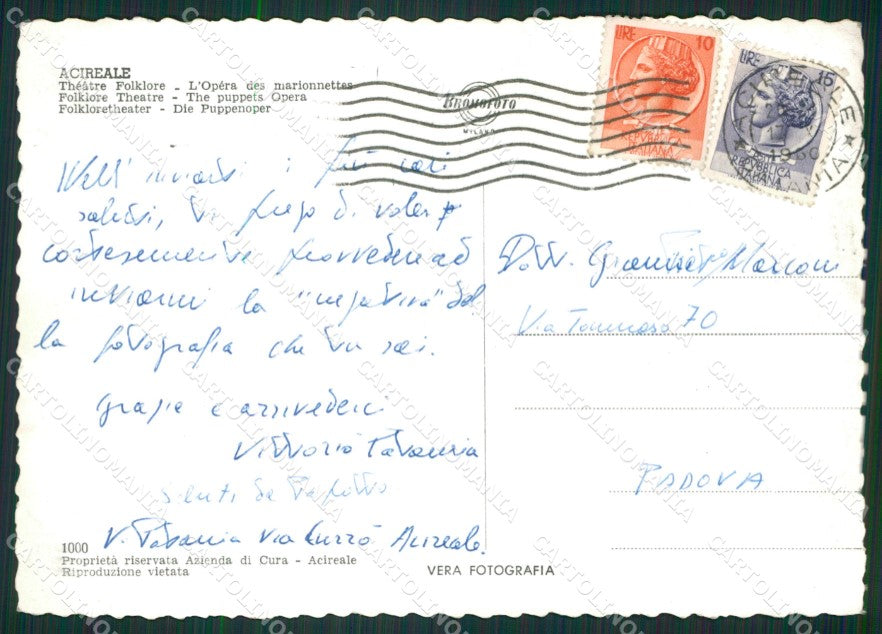 ACIREALE
Théâtre Folklore - L'Opéra des marionnettes
Folklore Theatre - The puppets Opera
Folkloretheater - Die Puppenoper
BROMOFOTO
MILANO
LIRE 10
REPVBBLICA
ITALIANA
LIRE 15
REPVBBLICA
ITALIANA
Nell' inviarti i più cari
saluti, ti prego di voler
cortesemente provvedere ad
inviarmi la "negativa" del
la fotografia che tu sai.
Grazie e arrivederci
Vittorio
Senti da
V. Via Curzò Acireale.
Dott. Marconi
Via Tommaso 70
PADOVA
1000
Proprietà riservata Azienda di Cura - Acireale
Riproduzione vietata
VERA FOTOGRAFIA
CARTOLINOMANIA